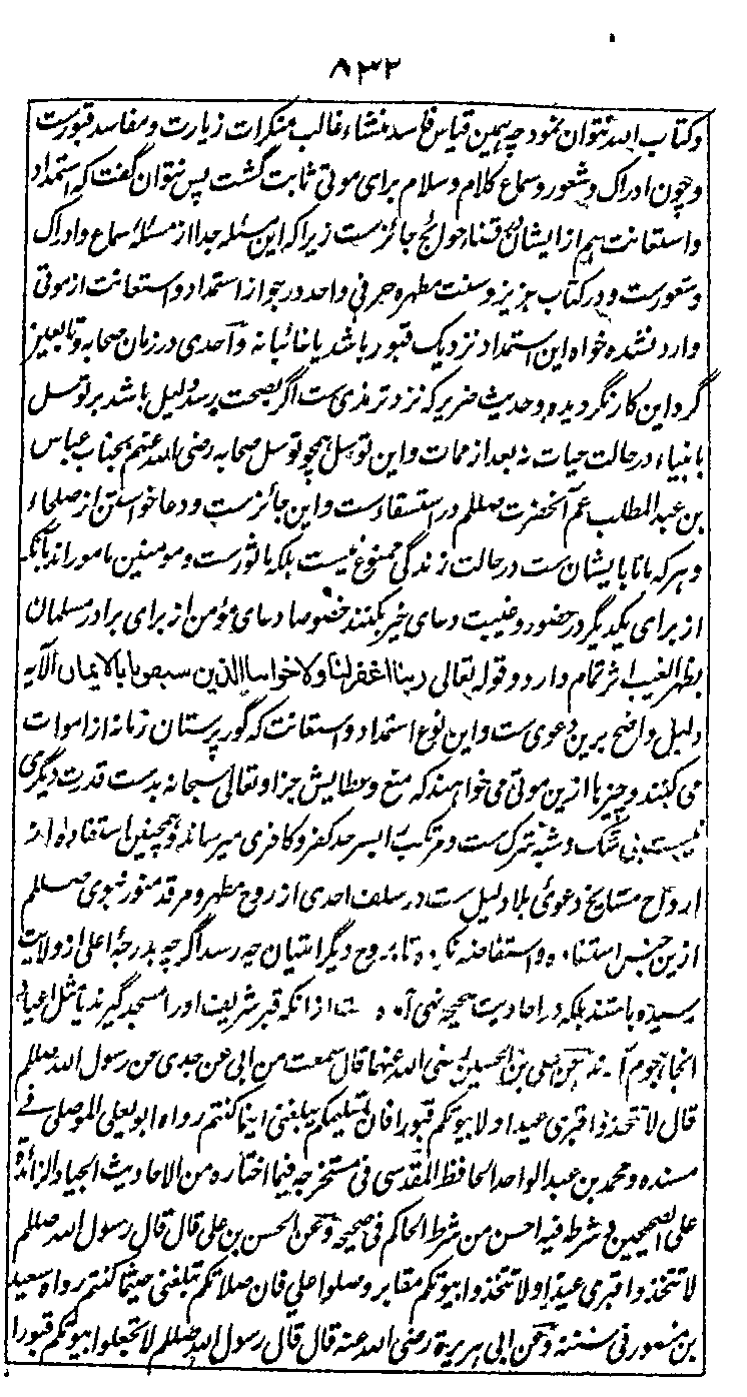 ۸۳۲
وکتاب الله نتوان نمود چه همین قیاس فاسد منشاء غالب منکرات زیارت و مفاسد قبورست
و چون ادراک و شعور و سماع کلام و سلام برای موتی ثابت گشت پس نتوان گفت که استمداد
و استعانت هم از ایشان قضاء حوائج جائزست زیرا که این مسئله جدا از مسئلۀ سماع و ادراک
و شعورست و در کتاب عزیز و سنت مطهره حرفی واحد در جواز استمداد و استعانت از موتی
وارد نشده خواه این استمداد نزدیک قبور باشد یا غائبانه و احدی در زمان صحابه و تابعین
گرد این کار نگردیده و حدیث ضریر که نزد ترمذی ست اگر بصحت رسد دلیل باشد بر توسل
بانبیاء در حالت حیات نه بعد از ممات و این توسل همچو توسل صحابه رضی الله عنهم بجناب عباس
بن عبدالمطلب عم آنحضرت صللم در استسقاءست و این جائزست و دعا خواستن از صلحاء
و هر که مانا بایشان ست در حالت زندگی ممنوع نیست بلکه ماثورست و مومنین مامور اند بآنکه
از برای یکدیگر در حضور و غیبت دعای خیر بکنند خصوصا دعای مؤمن از برای برادر مسلمان
بظهر الغیب اثر تمام دارد و قوله تعالی ربنا اغفر لنا ولاخواننا الذین سبقونا بالایمان الآیه
دلیل واضح برین دعوی ست و این نوع استمداد و استعانت که گور پرستان زمانه از اموات
می کنند و چیزها ازین موتی می خواهند که منع و عطایش جز او تعالی سبحانه بدست قدرت دیگری
نیست بی شک و شبه شرک ست و مرتکب را بسر حد کفر و کافری میرساند و همچنین استفاده از
ارواح مشایخ دعوئ بلا دلیل ست در سلف احدی از روح مطهر و مرقد منور نبوی صللم
ازین جنس و استفاضه نکرده تا بروح دیگر امتیان چه رسد اگرچه بدرجۀ اعلی از ولایت
رسیده باشند بلکه در احادیث صحیحه نهی آمده از آنکه قبر شریف او را مسجد گیرند یا مثل اعیاد
انجا هجوم علی بن الحسین رضی الله عنهما قال سمعت من ابی عن جدی عن رسول الله صللم
قال لا تتخذوا قبری عیدا ولا بیوتکم قبورا فان تسلیمکم یبلغنی اینما کنتم رواه ابو یعلی الموصلی فے
مسنده و محمد بن عبد الواحد الحافظ المقدسی فی مستخرجه فیما اختاره من الاحادیث الجیاد الزائدة
علی الصحیحین و شرطه فیه احسن من شرط الحاکم فی صحیحه و عن الحسن بن علی قال قال رسول الله صللم
لا تتخذوا قبری عیدا ولا تتخذوا بیوتکم مقابر وصلوا علی فان صلاتکم تبلغنی حیثما کنتم رواه سعید
بن منصور فی سننه و عن ابی هریرة رضی الله عنه قال قال رسول الله صللم لا تجعلوا بیوتکم قبورا